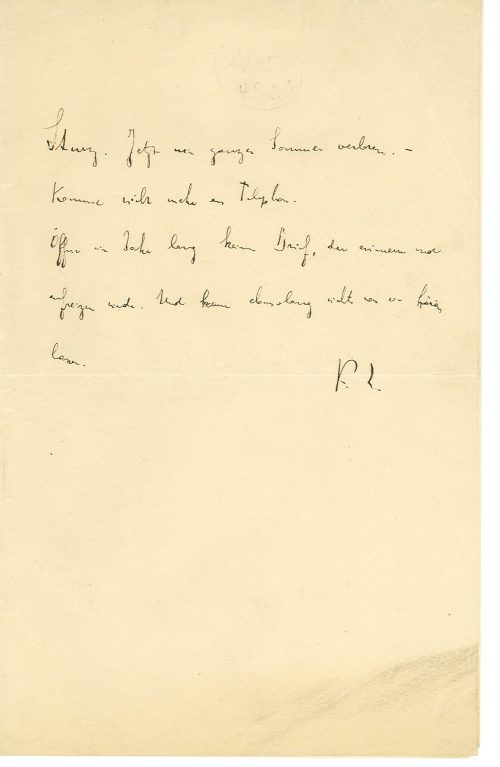 Sturz. Jetzt ein ganzer Sommer verloren. –
Komme nicht mehr ans Telephon.
Öffne ein Jahr lang kein Brief, der erinnern und
aufreizen würde. Und kann ebensolang nichts von mir hören
lassen.
K. L.